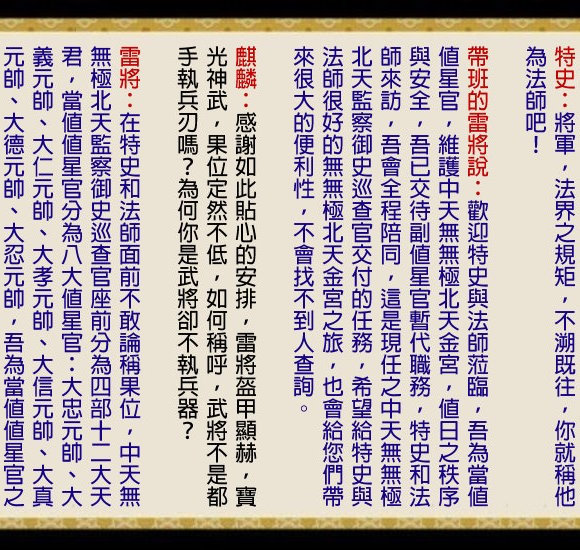 特史：將軍，法界之規矩，不溯既往，你就稱他
為法師吧！
帶班的雷將說：歡迎特史與法師蒞臨，吾為當值
值星官，維護中天無無極北天金宮，值日之秩序
與安全，吾已交待副值星官暫代職務，特史和法
師來訪，吾會全程陪同，這是現任之中天無無極
北天監察御史巡查官交付的任務，希望給特史與
法師很好的無無極北天金宮之旅，也會給您們帶
來很大的便利性，不會找不到人查詢。
麒麟：感謝如此貼心的安排，雷將盔甲顯赫，寶
光神武，果位定然不低，如何稱呼，武將不是都
手執兵刃嗎？為何你是武將卻不執兵器？
雷將：在特史和法師面前不敢論稱果位，中天無
無極北天監察御史巡查官座前分為四部十二大天
君，當值值星官分為八大值星官：大忠元帥、大
義元帥、大仁元帥、大孝元帥、大信元帥、大真
元帥、大德元帥、大忍元帥，吾為當值值星官之